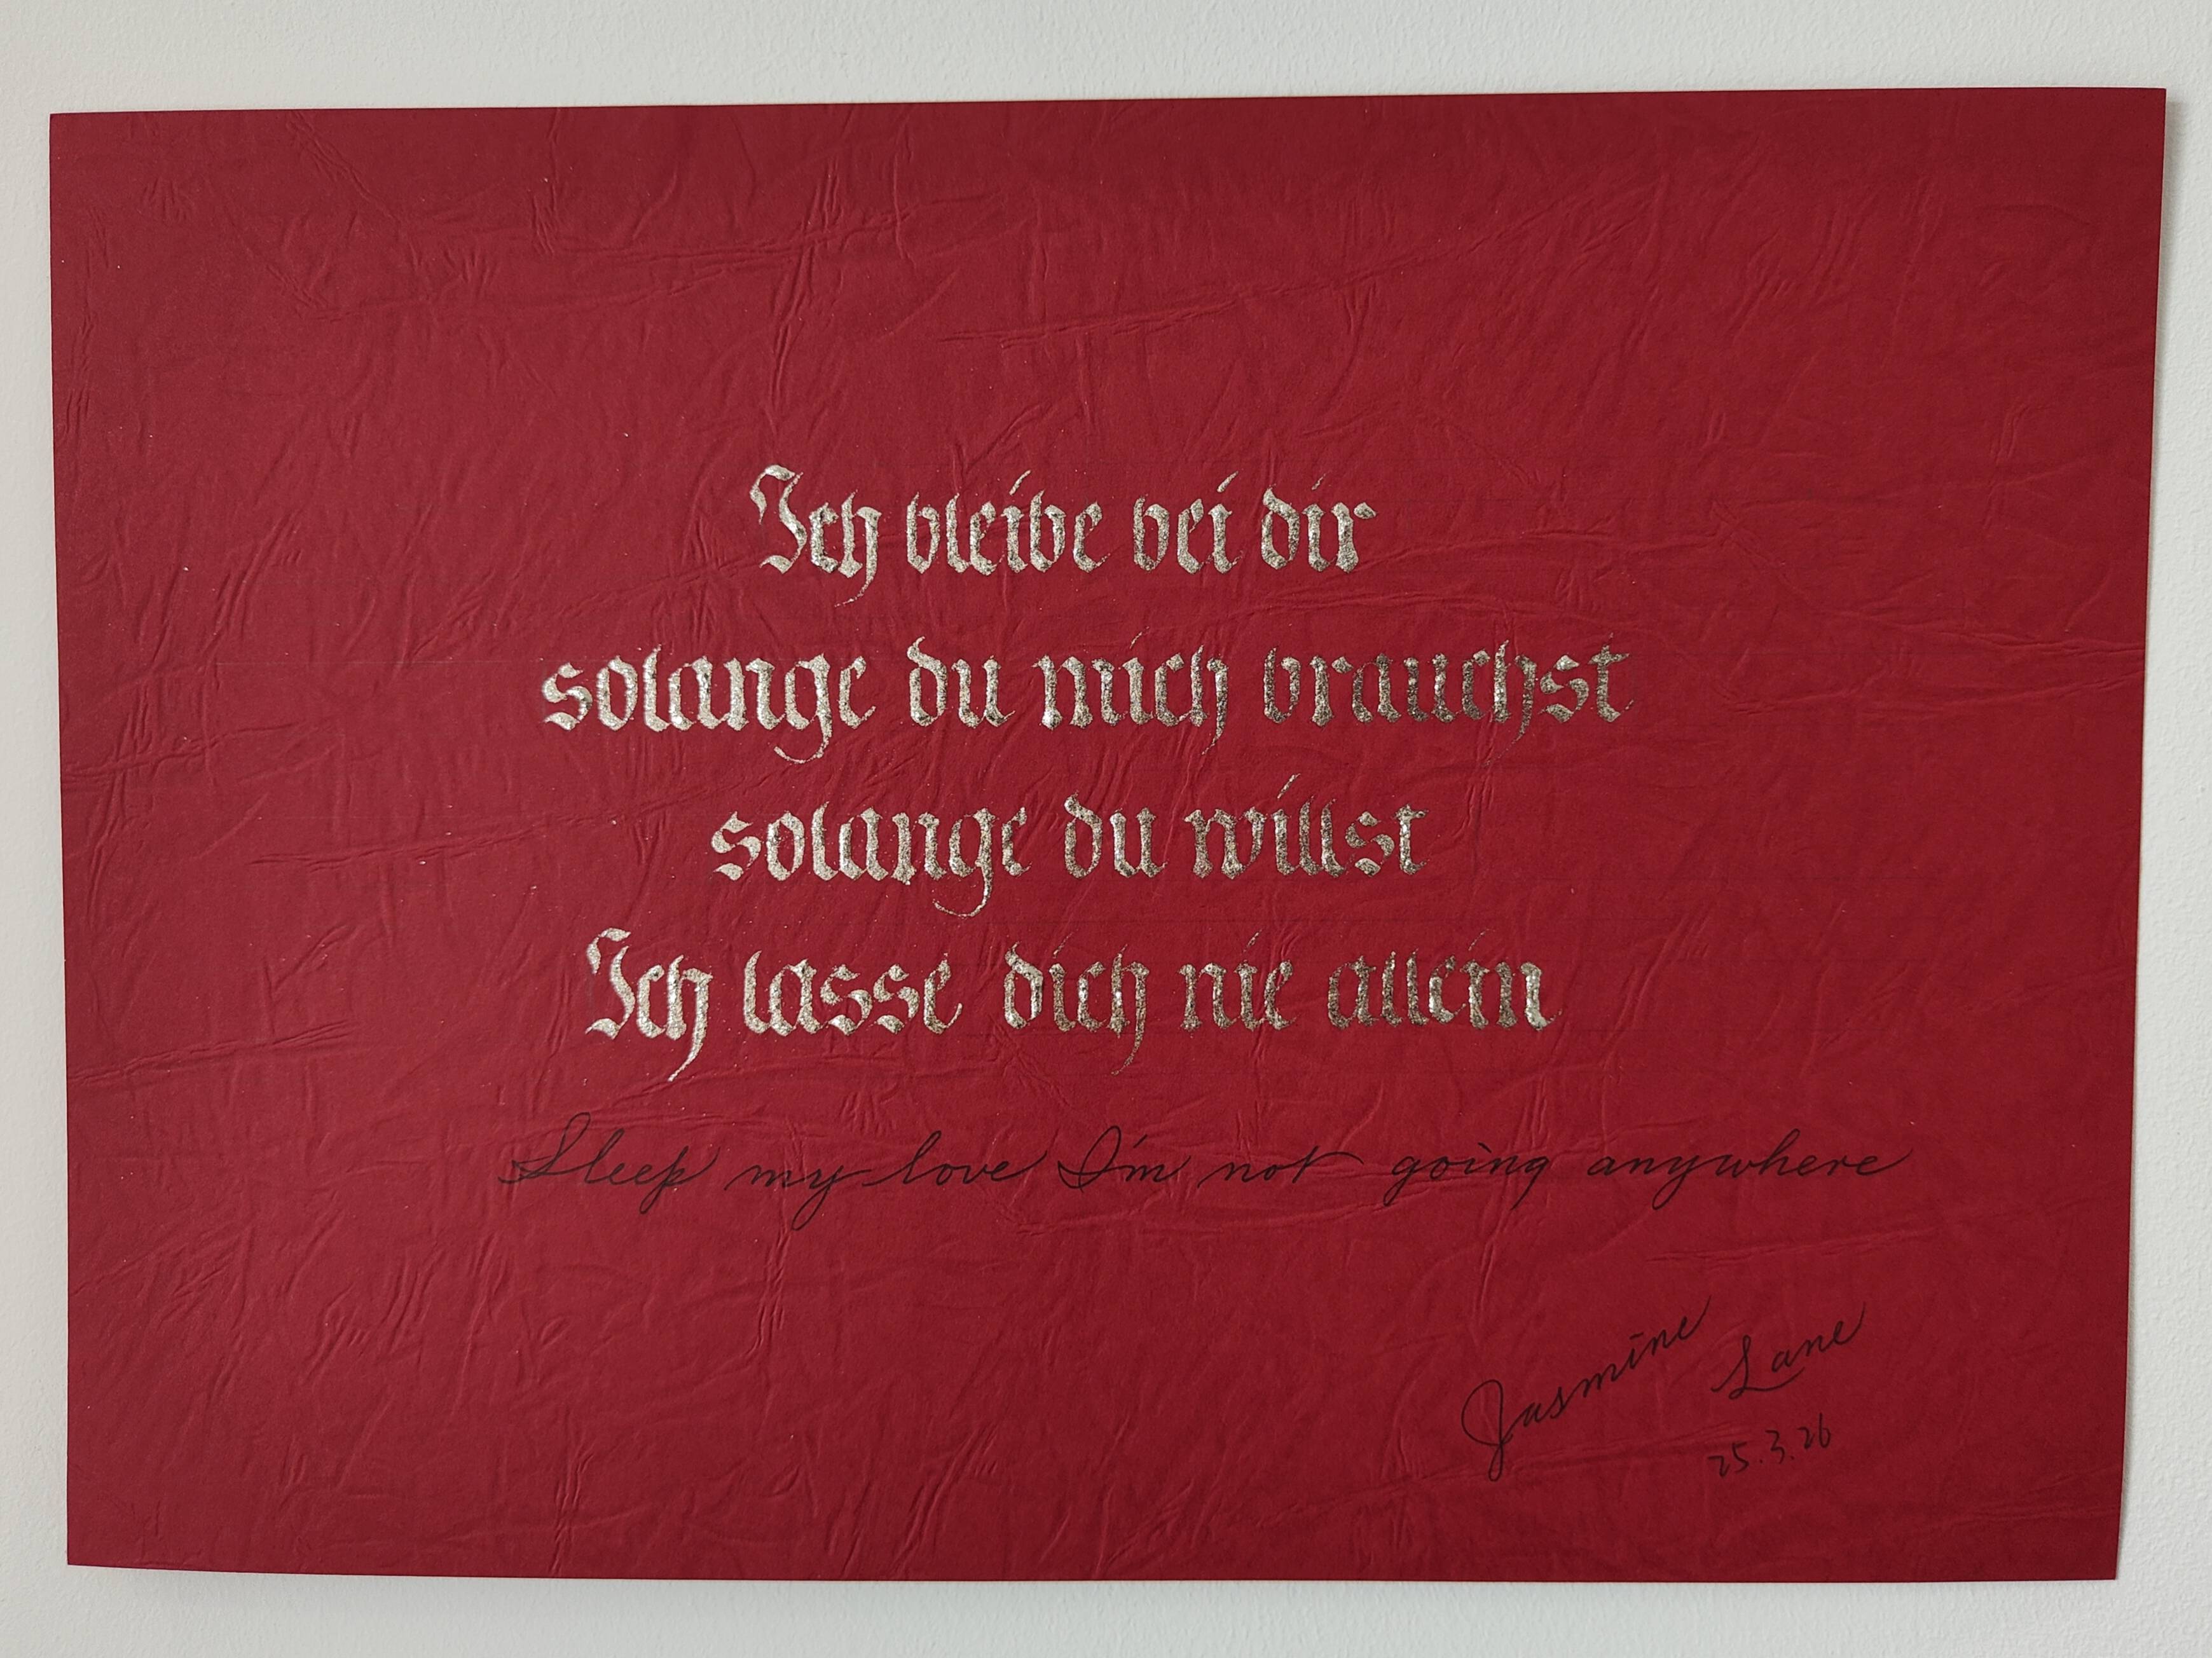 Ich bleibe bei dir
solange du mich brauchst
solange du willst
Ich lasse dich nie allein
Sleep my love I'm not going anywhere
Jasmine Lane
25.3.26